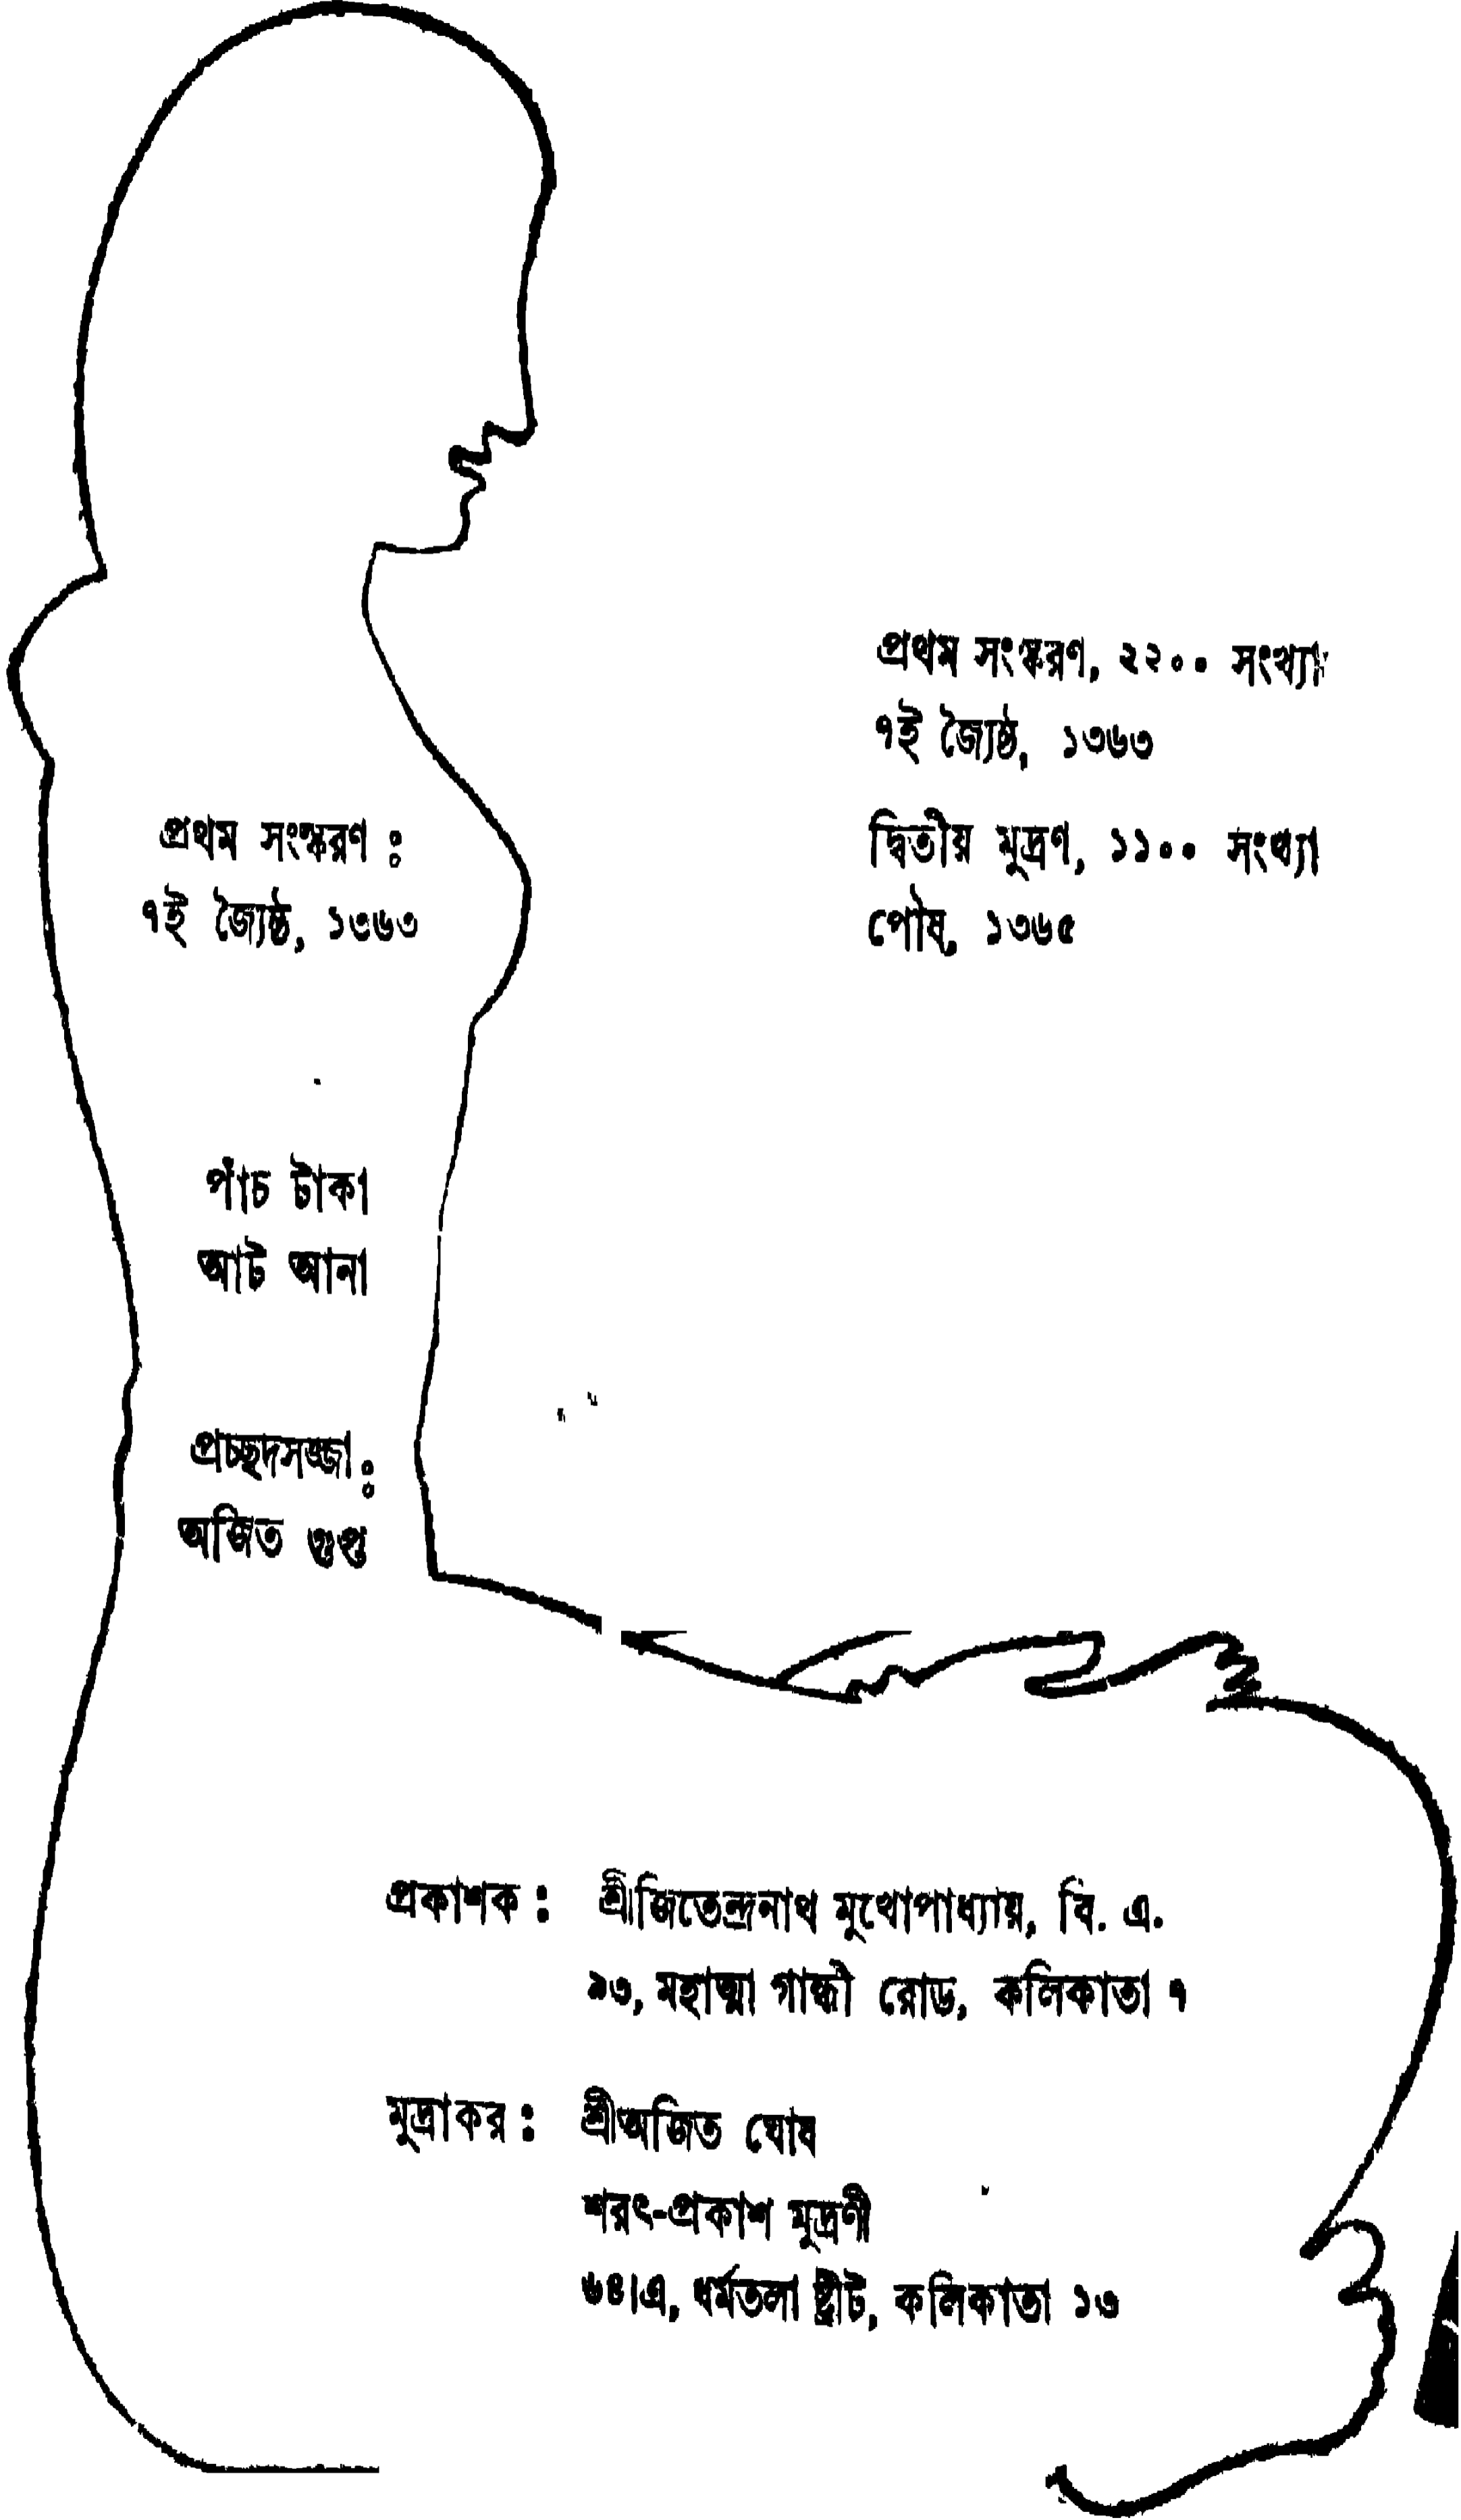 প্রথম সংস্করণ, ২২০০ সংখ্যা
৭ই জ্যৈষ্ঠ, ১৩৬৩
দ্বিতীয় মুদ্রণ, ১১০০ সংখ্যা
পৌষ, ১৩৬৫
প্রথম সংস্করণ :
৭ই জ্যৈষ্ঠ, ১৩৬৩
পাঁচ টাকা
আট আনা
প্রচ্ছদসজ্জা :
অজিত গুপ্ত
প্রকাশক : শ্রীজিতেন্দ্রনাথ মুখোপাধ্যায়, বি. এ.
৯৩, মহাত্মা গান্ধী রোড, কলিকাতা ৭
মুদ্রাকর : শ্রীঅজিত ঘোষ
শরৎ-প্রকাশ মুদ্রণী
৬৪।এ, ধর্মতলা ষ্ট্রীট, কলিকাতা ১৩